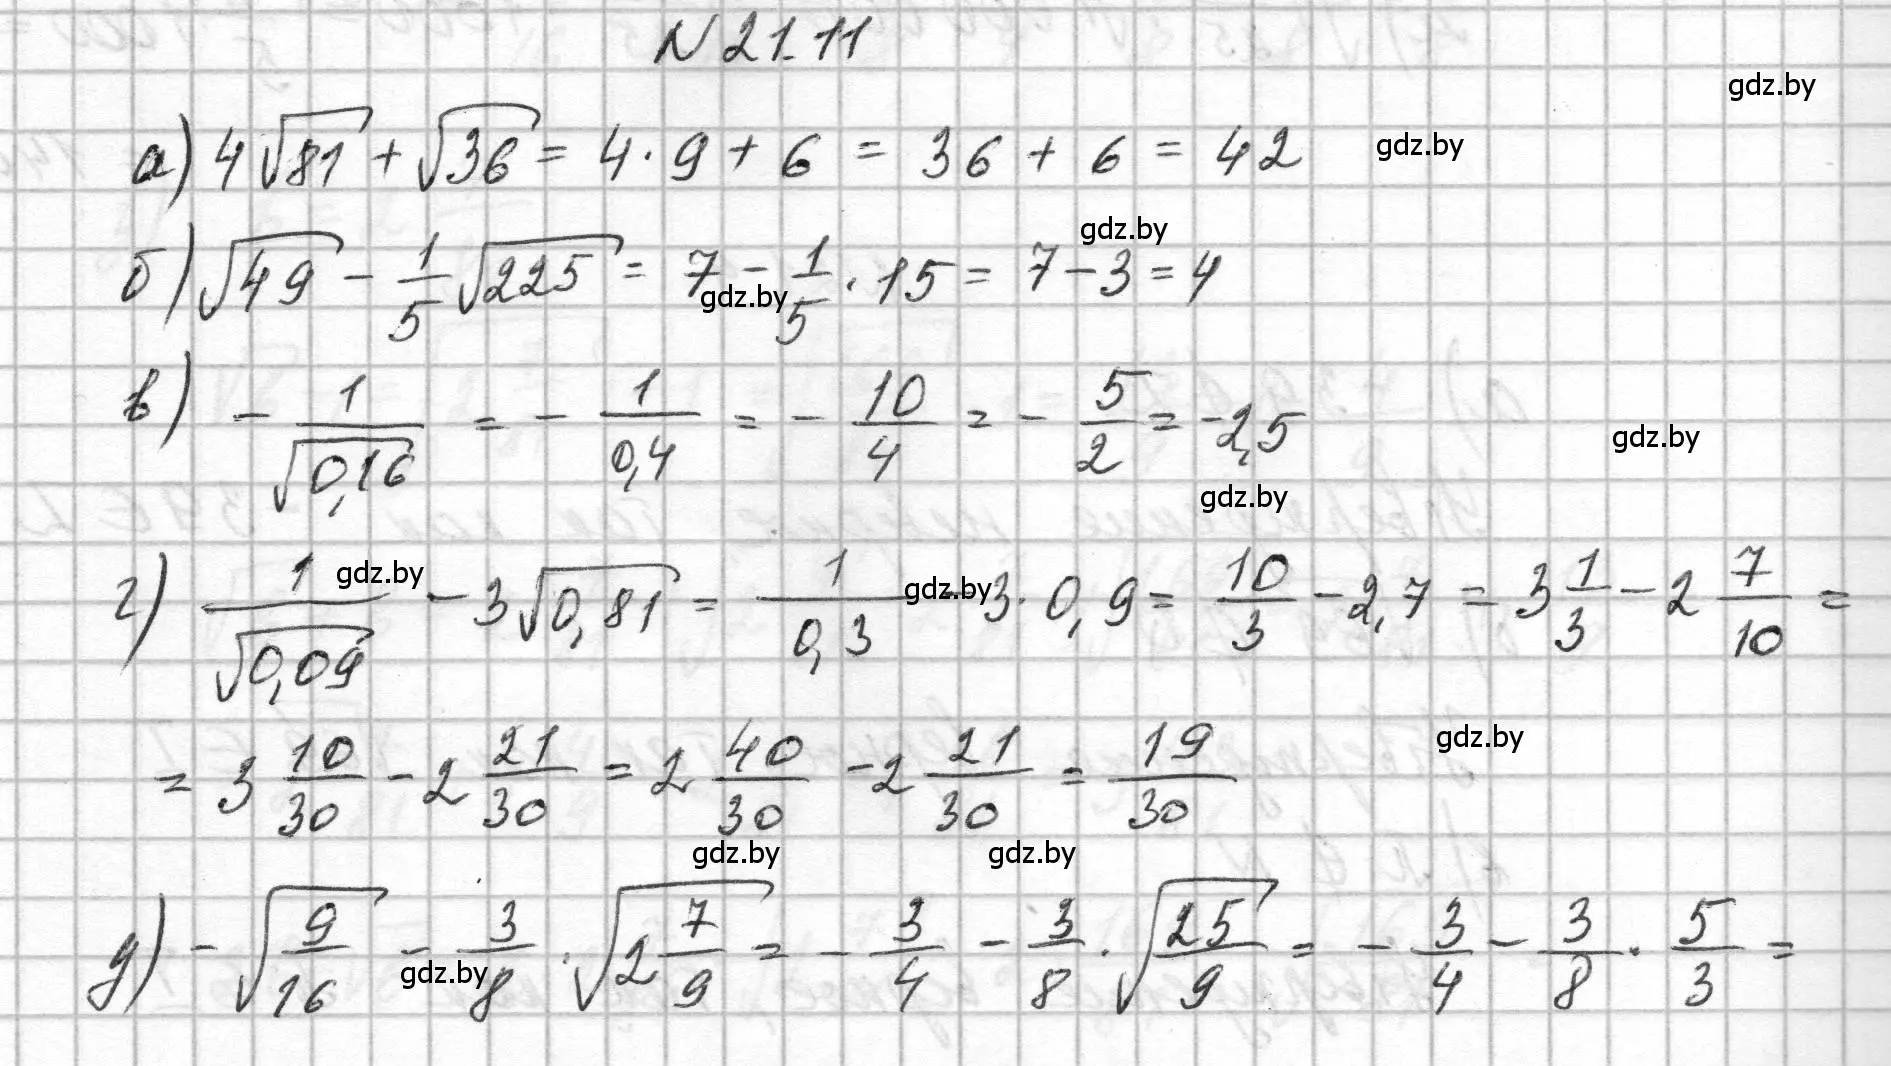 N 21.11
gdz.by
а) 4√81 + √36 = 4 · 9 + 6 = 36 + 6 = 42 gdz.by
gdz.by
б) √49 - 1/5 √225 = 7 - 1/5 · 15 = 7 - 3 = 4
gdz.by
в) - 1/√0,16 = - 1/0,4 = - 10/4 = - 5/2 = -2,5 gdz.by
gdz.by
г) 1/√0,09 - 3√0,81 = 1/0,3 - 3 · 0,9 = 10/3 - 2,7 = 3 1/3 - 2 7/10 =
gdz.by gdz.by
= 3 10/30 - 2 21/30 = 2 40/30 - 2 21/30 = 19/30 gdz.by
gdz.by gdz.by
д) - √(9/16) - 3/8 · √(2 7/9) = - 3/4 - 3/8 · √(25/9) = - 3/4 - 3/8 · 5/3 =
gdz.by